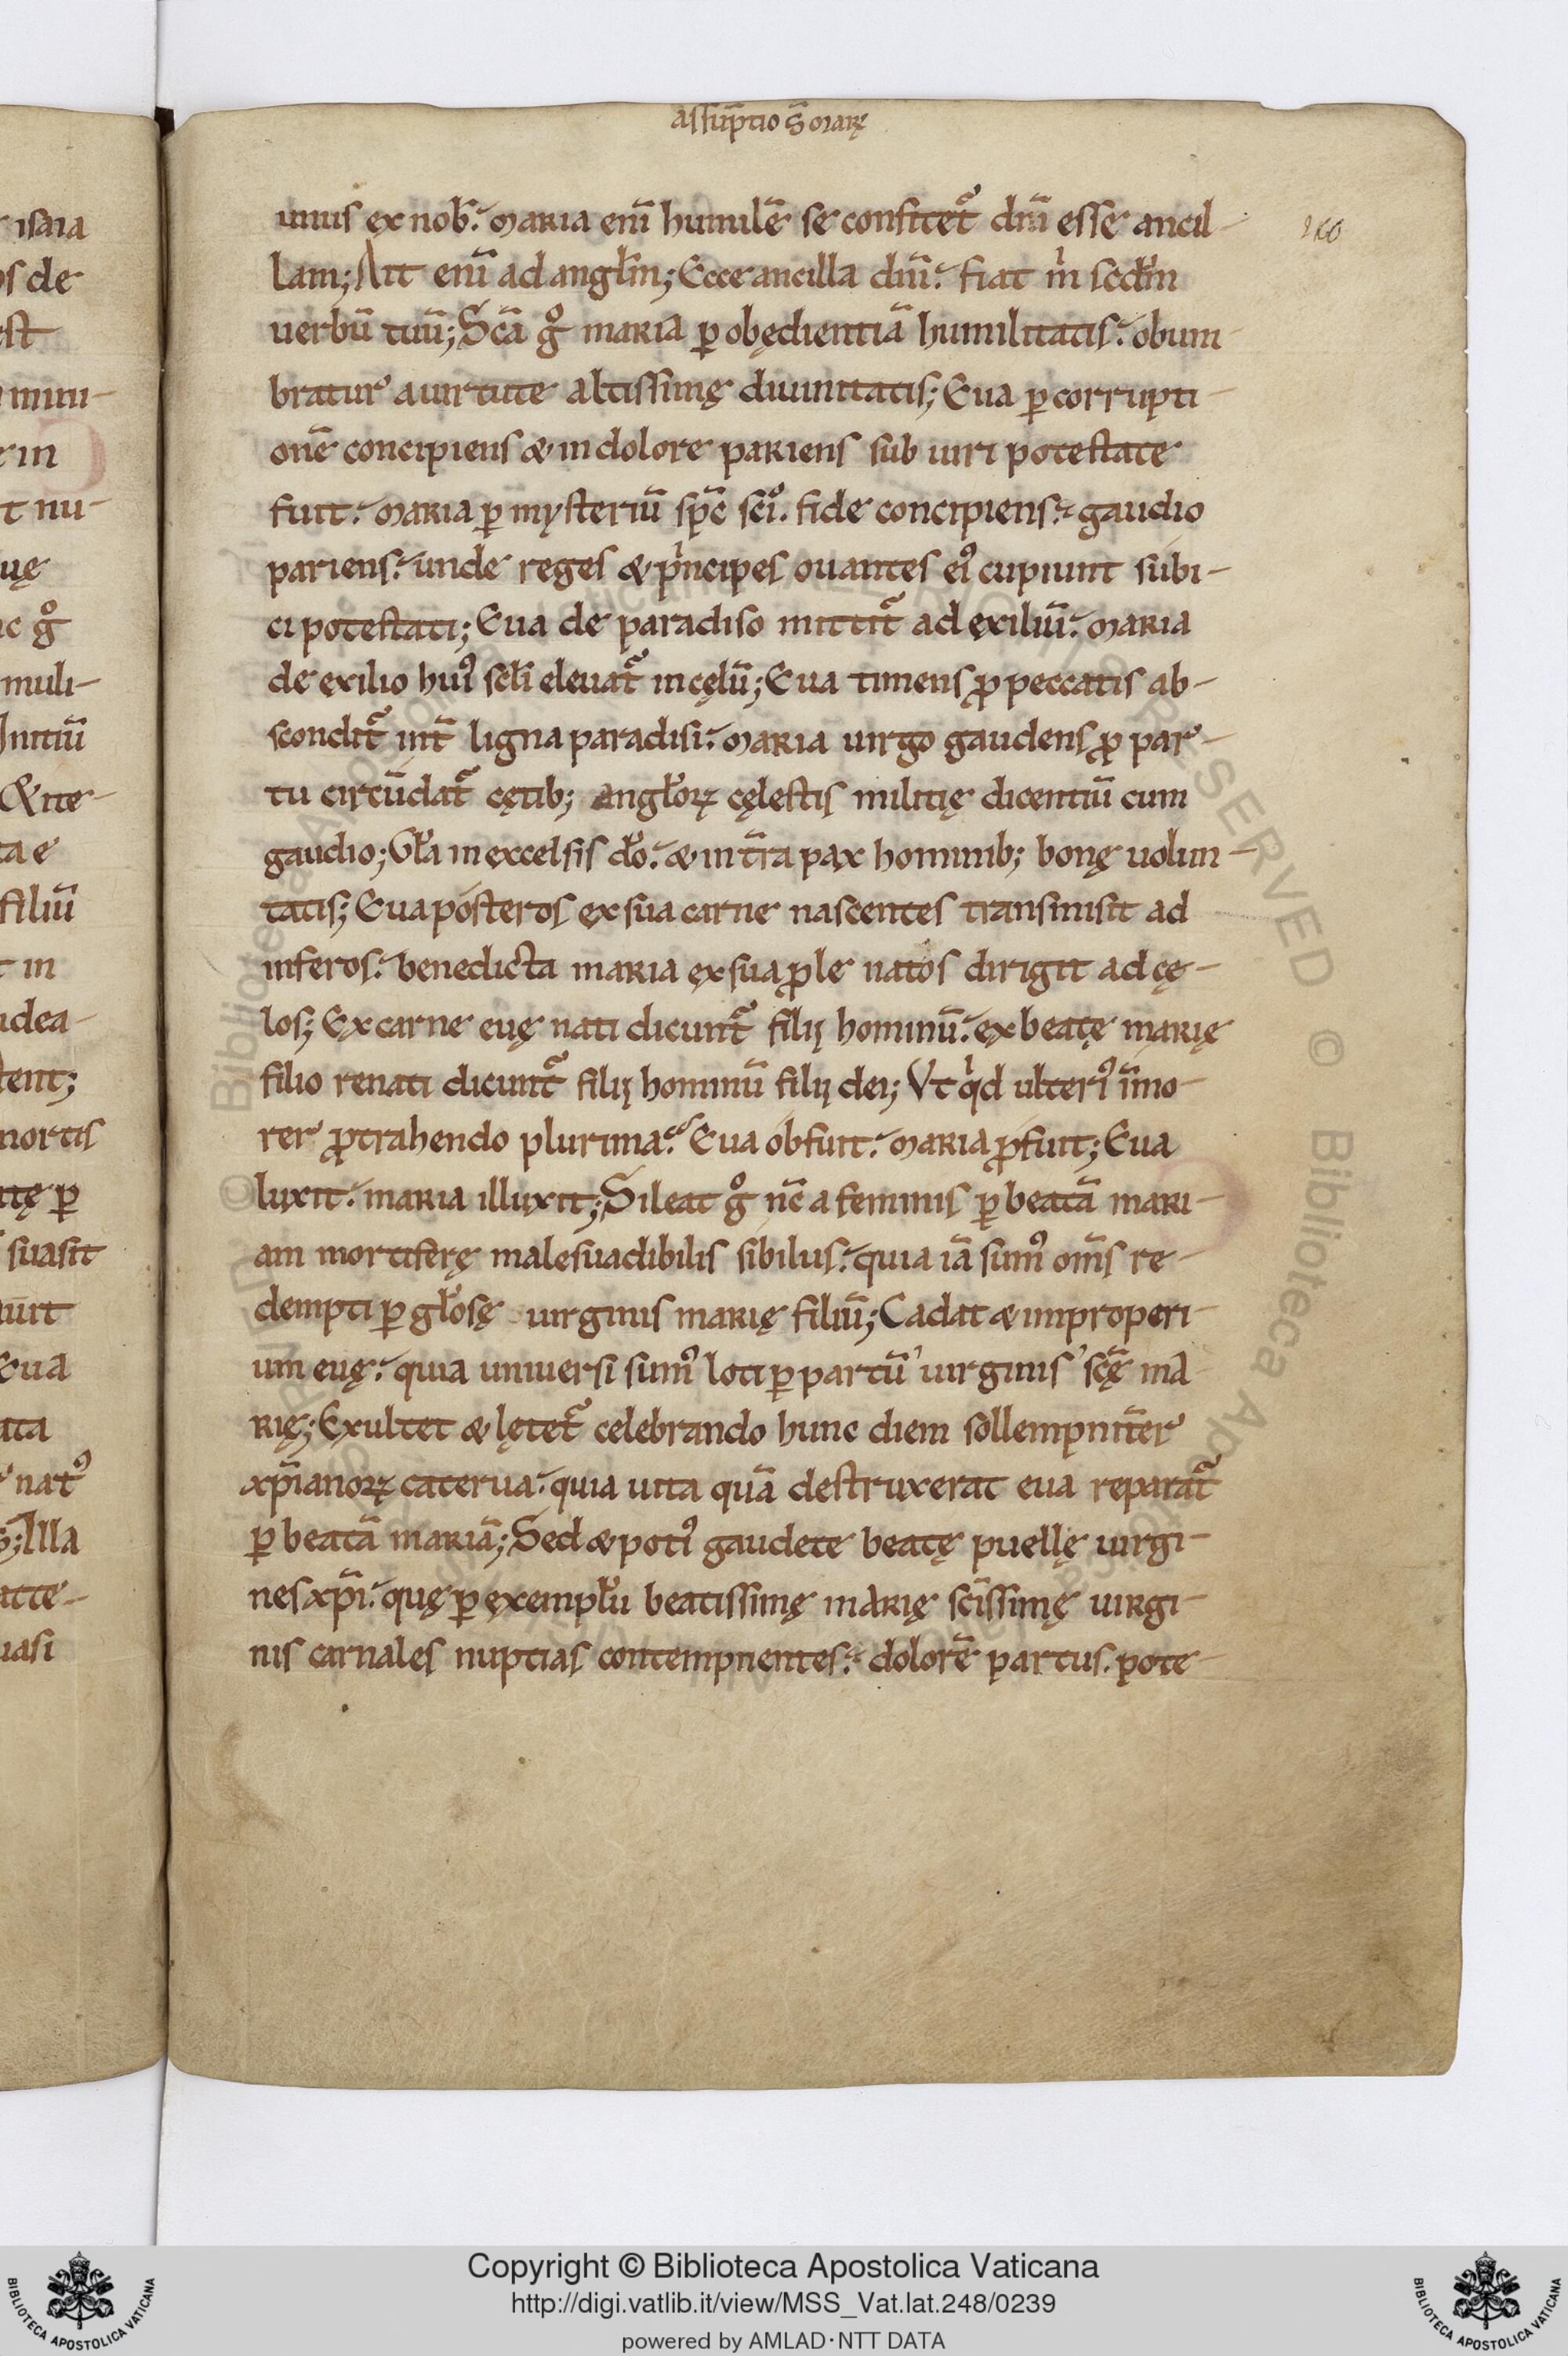 assūptio S̄ marię
160
unus ex nob̄. maria eni̅ humilē se confitet᷑ dn̄i esse ancil-
lam; Ait eni̅ ad angl̄m; Ecce ancilla dn̄i. fiat m̍ scdm̄
uerbū tuū; Scā gͦ maria ꝑ obędientiā humilitatis. obum-
bratur a uirtute altissimę diuinitatis; Eua ꝑ corrupti-
onē concipiens & in dolore pariens sub uiri potestate
fuit. maria ꝑ mysteriū sp̄c sci̅. fide concipiens. gaudio
pariens. unde reges & pͥncipes ouantes eiꝰ cupiunt subi-
ci potestati; Eua de paradiso mittit᷑ ad exiliū. maria
de exilio huiꝰ scl̄i eleuat᷑ in cęlū; Eua timens ꝓ peccatis ab-
scondit᷑ int̄ ligna paradisi. maria uirgo gaudens ꝓ par-
tu circūdat᷑ cętib; angl̄oꝝ cęlestis militię dicentiū cum
gaudio; Gl̄a in excelsis do̅. & in t̄ra pax hominib; bonę uolun-
tatis; Eua posteros ex sua carne nascentes transmisit ad
inferos. benedicta maria ex sua ꝓle natos dirigit ad cę-
los; Ex carne euę nati dicunt᷑ filij hominū. ex beatę marię
filio renati dicunt᷑ filij hominū filij dei; Vt qͥd ulteriꝰ īmo-
rer ꝓtrahendo plurima. Eua obfuit. maria ꝓfuit; Eua
luxit. maria illuxit; Sileat gͦ nc̄ a feminis ꝑ beatā mari-
am mortiferę malesuadibilis sibilus. quia iā sumꝰ om̄s re-
dempti ꝑ gl̄osę uirginis marię filiū; Cadat & improperi-
um euę. quia uniuersi sumꝰ loti ꝑ partū uirginis scę̄ ma
rię; Exultet & lętet᷑ celebrando hunc diem sollempnit̄er
xp̄ianoꝝ caterua. quia uita quā destruxerat eua reparat᷑
ꝑ beatā mariā; Sed & potiꝰ gaudete beatę puellę uirgi-
nes xp̄i. quę ꝑ exempl̄u beatissimę marię sci̅ssimę uirgi-
nis carnales nuptias contempnentes. dolorē partus. pote-
Copyright © Biblioteca Apostolica Vaticana
http://digi.vatlib.it/view/MSS_Vat.lat.248/0239
powered by AMLAD·NTT DATA
BIBLIOTECA APOSTOLICA VATICANA
BIBLIOTECA APOSTOLICA VATICANA